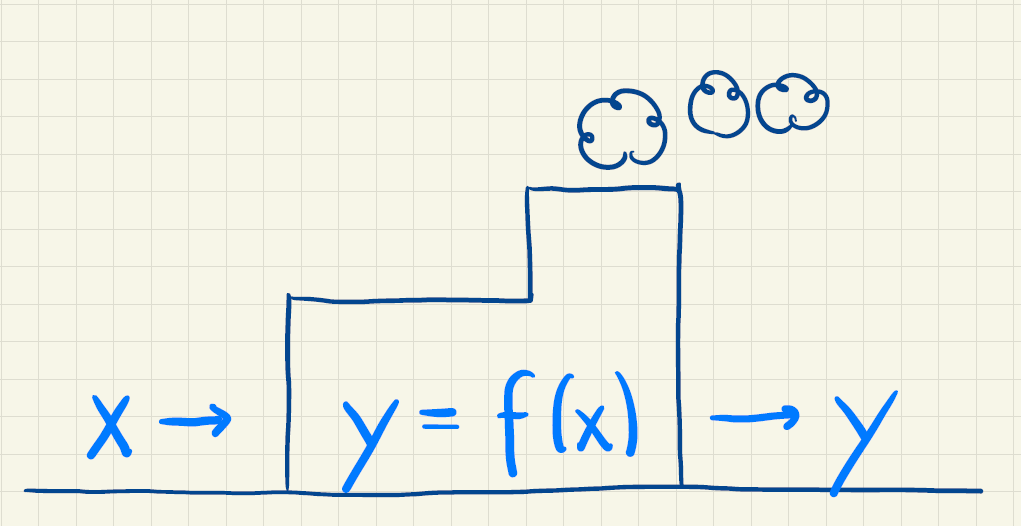 x → y = f(x) → y